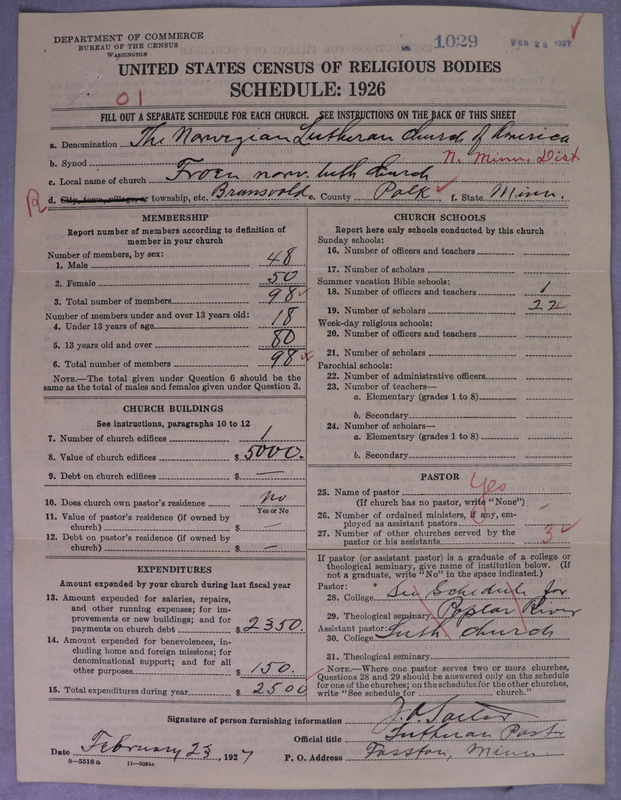 DEPARTMENT OF COMMERCE
BUREAU OF THE CENSUS
WASHINGTON
1029
FEB 28 1927
UNITED STATES CENSUS OF RELIGIOUS BODIES
SCHEDULE: 1926
01
FILL OUT A SEPARATE SCHEDULE FOR EACH CHURCH. SEE INSTRUCTIONS ON THE BACK OF THIS SHEET
a. Denomination The Norwegian Lutheran Church of America
b. Synod N. Minn. Dist
c. Local name of church Froen norw. luth church
R d. City, town, village, or township, etc. Bransvold e. County Polk f. State Minn.
MEMBERSHIP
Report number of members according to definition of member in your church
Number of members, by sex:
1. Male 48
2. Female 50
3. Total number of members 98
Number of members under and over 13 years old:
4. Under 13 years of age 18
5. 13 years old and over 80
6. Total number of members 98
NOTE.—The total given under Question 6 should be the same as the total of males and females given under Question 3.
CHURCH BUILDINGS
See instructions, paragraphs 10 to 12
7. Number of church edifices 1
8. Value of church edifices $ 5000.
9. Debt on church edifices $ —
10. Does church own pastor's residence No
Yes or No
11. Value of pastor's residence (if owned by church) $ —
12. Debt on pastor's residence (if owned by church) $ —
EXPENDITURES
Amount expended by your church during last fiscal year
13. Amount expended for salaries, repairs, and other running expenses; for improvements or new buildings; and for payments on church debt $ 2350.
14. Amount expended for benevolences, including home and foreign missions; for denominational support; and for all other purposes $ 150.
15. Total expenditures during year $ 2500
CHURCH SCHOOLS
Report here only schools conducted by this church
Sunday schools:
16. Number of officers and teachers
17. Number of scholars
Summer vacation Bible schools:
18. Number of officers and teachers 1
19. Number of scholars 22
Week-day religious schools:
20. Number of officers and teachers
21. Number of scholars
Parochial schools:
22. Number of administrative officers
23. Number of teachers—
a. Elementary (grades 1 to 8)
b. Secondary
24. Number of scholars—
a. Elementary (grades 1 to 8)
b. Secondary
PASTOR
25. Name of pastor Yes
(If church has no pastor, write "None")
26. Number of ordained ministers, if any, employed as assistant pastors -
27. Number of other churches served by the pastor or his assistants 3
If pastor (or assistant pastor) is a graduate of a college or theological seminary, give name of institution below. (If not a graduate, write "No" in the space indicated.)
Pastor:
28. College See Schedule for
29. Theological seminary Poplar River
Assistant pastor:
30. College Luth. Church
31. Theological seminary
NOTE.—Where one pastor serves two or more churches, Questions 28 and 29 should be answered only on the schedule for one of the churches; on the schedules for the other churches, write "See schedule for ______ church."
Signature of person furnishing information
Official title Lutheran Pastor
Date February 23, 1927 P. O. Address Fosston, Minn.
8—5518a 11—9064